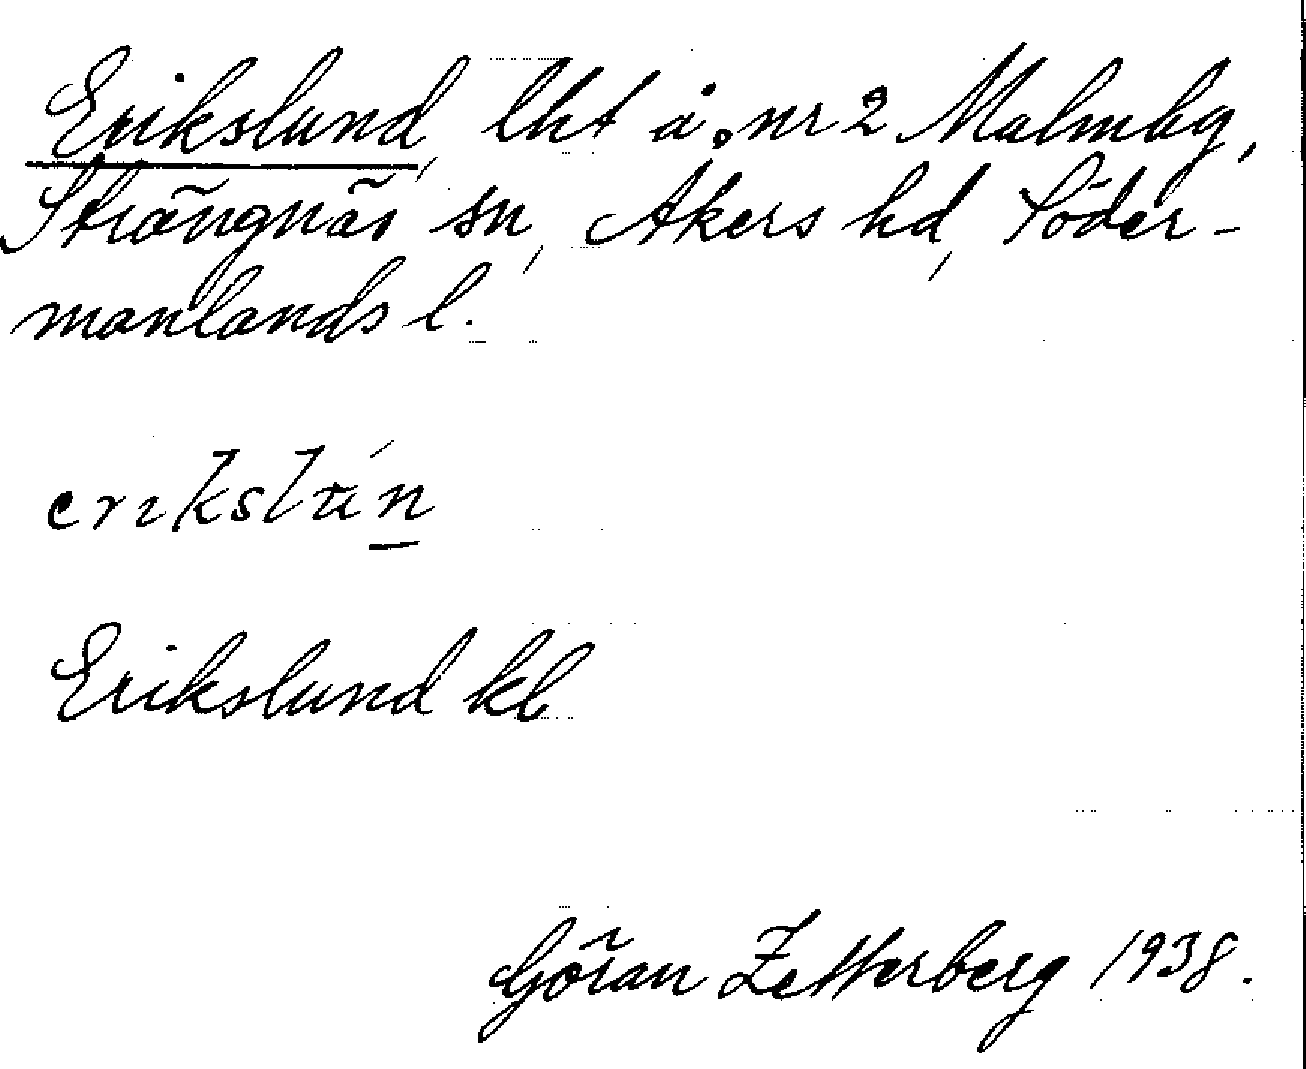 Erikslund, lht å nr 2 Malmby,
Strängnäs sn, Åkers hd, Söder-
manlands l.
erikslun
Erikslund kl
Göran Zetterberg 1938.